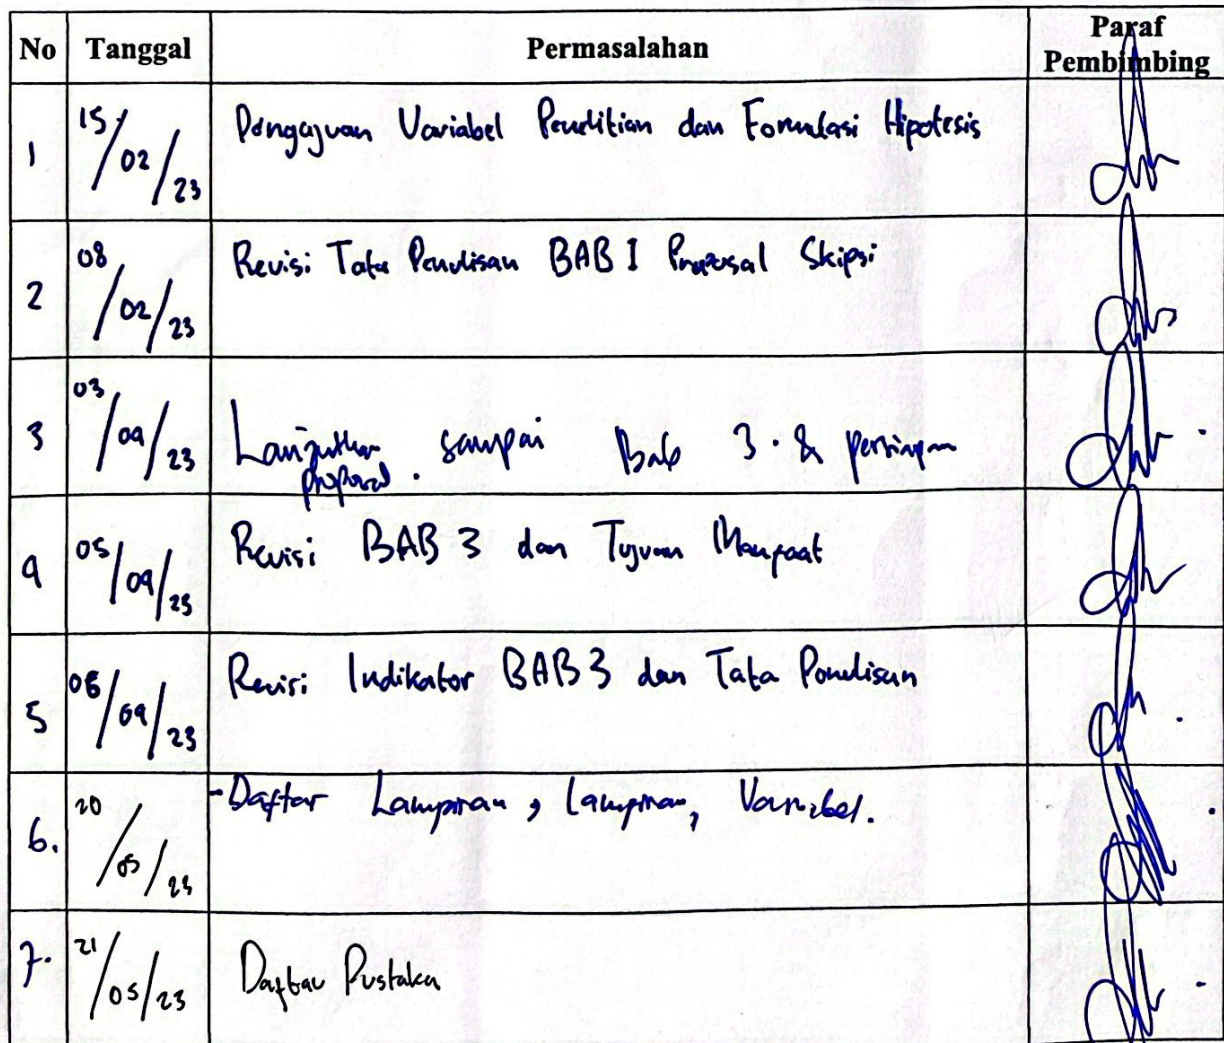 No Tanggal Permasalahan Paraf Pembimbing
1 15/02/23 Pengajuan Variabel Penelitian dan Formulasi Hipotesis
2 08/02/23 Revisi Tata Penulisan BAB I Proposal Skipsi
3 03/04/23 Lanjutkan sampai Bab 3. & persiapan
proposal.
4 05/04/23 Revisi BAB 3 dan Tujuan Manfaat
5 06/04/23 Revisi Indikator BAB 3 dan Tata Penulisan
6. 20/05/23 - Daftar Lampiran, Lampiran, Variabel.
7. 21/05/23 Daftar Pustaka